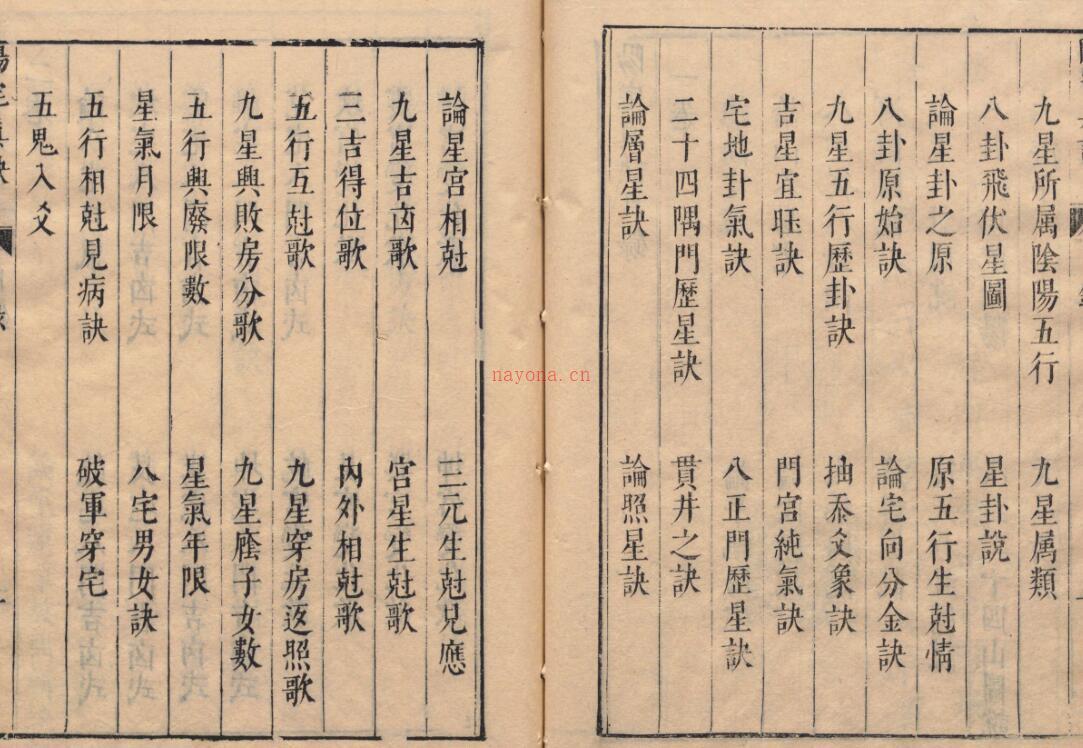 九星所属陰陽五行
九星属類
八卦飛伏星圖
星卦説
論星卦之原
原五行生尅情
八卦原始訣
論宅向分金訣
九星五行歷卦訣
抽爻象訣
吉星宜旺訣
門宮純氣訣
宅地卦氣訣
八正門歷星訣
二十四隅門歷星訣
貫井之訣
論層星訣
論照星訣
論星宮相尅
三元生尅見應
九星吉凶歌
宮星生尅歌
三吉得位歌
內外相尅歌
五行互尅歌
九星穿房返照歌
九星興敗房分歌
九星應子女數
五行興廢限數
星氣年限
星氣月限
八宅男女訣
五行相尅見病訣
破軍穿宅
五鬼入爻
nayona.cn